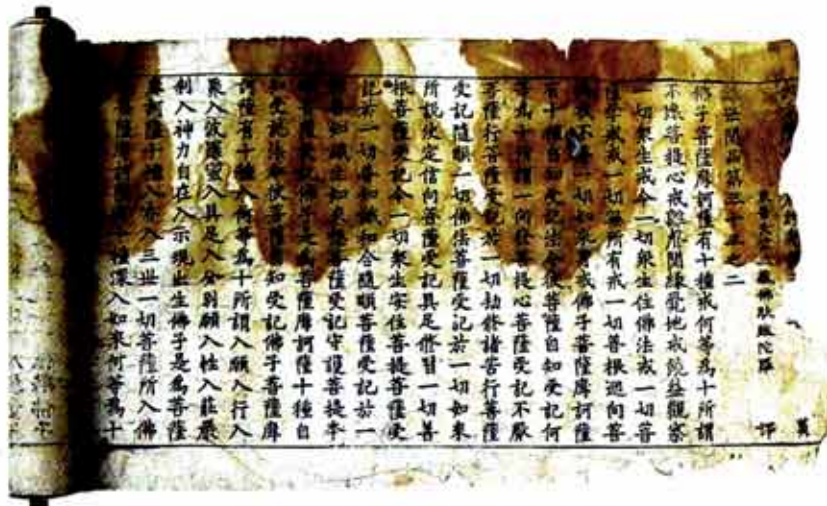 東晉天竺三藏佛馱跋陀羅 譯
世間品第三十三之二
佛子菩薩摩訶薩有十種戒何等為十所謂
不壞菩提心戒離聲聞緣覺地戒饒益觀察
一切眾生戒令一切眾生住佛法戒一切菩
薩學戒戒一切無所有戒一切善根迴向菩
提戒不著一切如來身戒佛子菩薩摩訶薩
有十種自知受記法令彼菩薩自知受記何
等為十所謂一向發菩提心菩薩受記不厭
菩薩行菩薩受記於一切劫修諸苦行菩薩
受記隨順一切佛法菩薩受記於一切如來
所說決定信向菩薩受記具足修習一切善
根菩薩受記令一切眾生安住菩提菩薩受
記於一切善知識和合隨順菩薩受記於一
善知識生如來想菩薩受記守護菩提本
菩薩受記佛子是為菩薩摩訶薩十種自
知受記法令彼菩薩自知受記佛子菩薩摩
訶薩有十種入何等為十所謂入願入行入
聚入波羅蜜入具足入分別願入性入莊嚴
刹入神力自在入示現出生佛子是為菩薩
摩訶薩十種入悉入三世一切菩薩所入佛
菩薩摩訶薩有十種深入如來何等為十